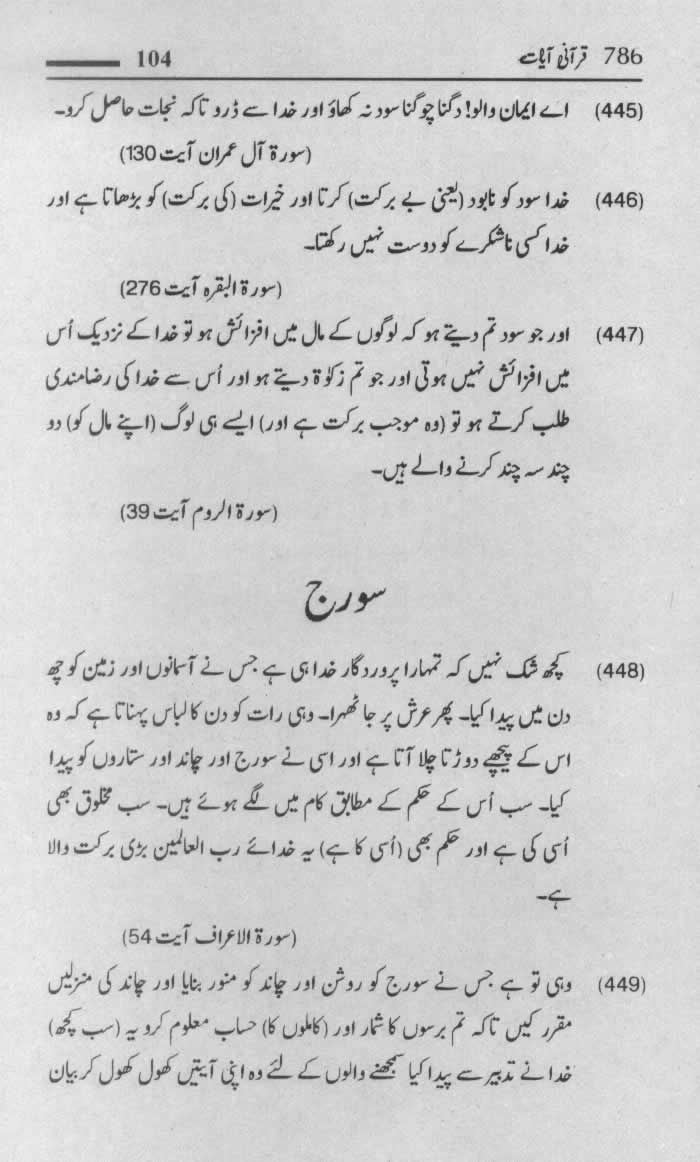 786 قرآنی آیات 104
(445) اے ایمان والو! دگنا چوگنا سود نہ کھاؤ اور خدا سے ڈرو تاکہ نجات حاصل کرو۔
(سورۃ آل عمران آیت 130)
(446) خدا سود کو نابود (یعنی بے برکت) کرتا اور خیرات (کی برکت) کو بڑھاتا ہے اور
خدا کسی ناشکرے کو دوست نہیں رکھتا۔
(سورۃ البقرہ آیت 276)
(447) اور جو سود تم دیتے ہو کہ لوگوں کے مال میں افزائش ہو تو خدا کے نزدیک اُس
میں افزائش نہیں ہوتی اور جو تم زکوٰۃ دیتے ہو اور اُس سے خدا کی رضامندی
طلب کرتے ہو تو (وہ موجب برکت ہے اور) ایسے ہی لوگ (اپنے مال کو) دو
چند سہ چند کرنے والے ہیں۔
(سورۃ الروم آیت 39)
سورج
(448) کچھ شک نہیں کہ تمہارا پروردگار خدا ہی ہے جس نے آسمانوں اور زمین کو چھ
دن میں پیدا کیا۔ پھر عرش پر جا ٹھہرا۔ وہی رات کو دن کا لباس پہناتا ہے کہ وہ
اس کے پیچھے دوڑتا چلا آتا ہے اور اسی نے سورج اور چاند اور ستاروں کو پیدا
کیا۔ سب اُس کے حکم کے مطابق کام میں لگے ہوئے ہیں۔ سب مخلوق بھی
اُسی کی ہے اور حکم بھی (اُسی کا ہے) یہ خدائے رب العالمین بڑی برکت والا
ہے۔
(سورۃ الاعراف آیت 54)
(449) وہی تو ہے جس نے سورج کو روشن اور چاند کو منور بنایا اور چاند کی منزلیں
مقرر کیں تاکہ تم برسوں کا شمار اور (کاموں کا) حساب معلوم کرو یہ (سب کچھ)
خدا نے تدبیر سے پیدا کیا سمجھنے والوں کے لئے وہ اپنی آیتیں کھول کھول کر بیان